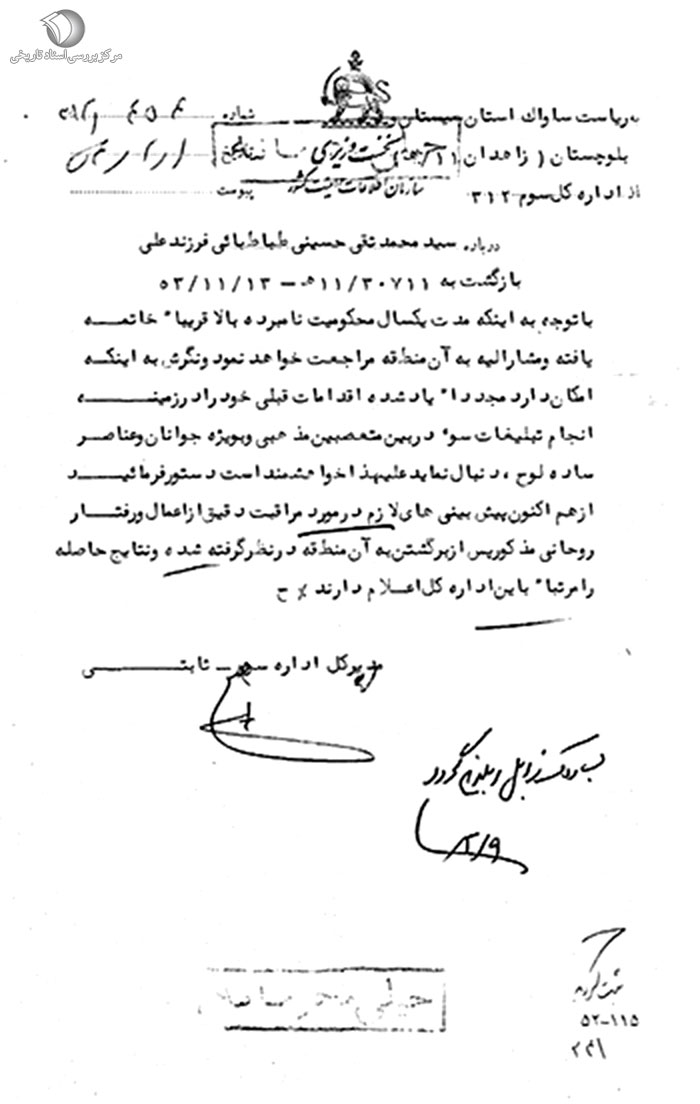 مرکز بررسی اسناد تاریخی
به ریاست ساواك استان سیستان
بلوچستان ( زاهدان ۱۱
از اداره کل سوم ۳۱۲
شماره
نخست وزیری
سازمان اطلاعات و امنیت کشور
پیوست
درباره سید محمد تقی حسینی طباطبائی فرزند علی
بازگشت به ۱۱/۳۰۷۱۱ه‍ - ۵۲/۱۱/۱۳
باتوجه به اینکه مدت یکسال محکومیت نامبرده بالا قریبا" خاتمه
یافته ومشارالیه به آن منطقه مراجعت خواهد نمود ونگرش به اینکه
امکان دارد مجددا" یاد شده اقدامات قبلی خود را در زمینه
انجام تبلیغات سو" در بین متعصبین مذهبی وبویژه جوانان وعناصر
ساده لوح ، دنبال نماید علیهذا خواهشمند است دستور فرمائید
از هم اکنون پیش بینی های لازم در مورد مراقبت دقیق از اعمال ورفتار
روحانی مذکور پس از برگشتن به آن منطقه در نظر گرفته شده ونتایج حاصله
را مرتبا" باین اداره کل اعلام دارند ٪ ح
مدیر کل اداره سوم - ثابتی
گردد
۲/۹
خیلی محرمانه
ثبت گردید
۵۲-۱۱۵
۲۳۱